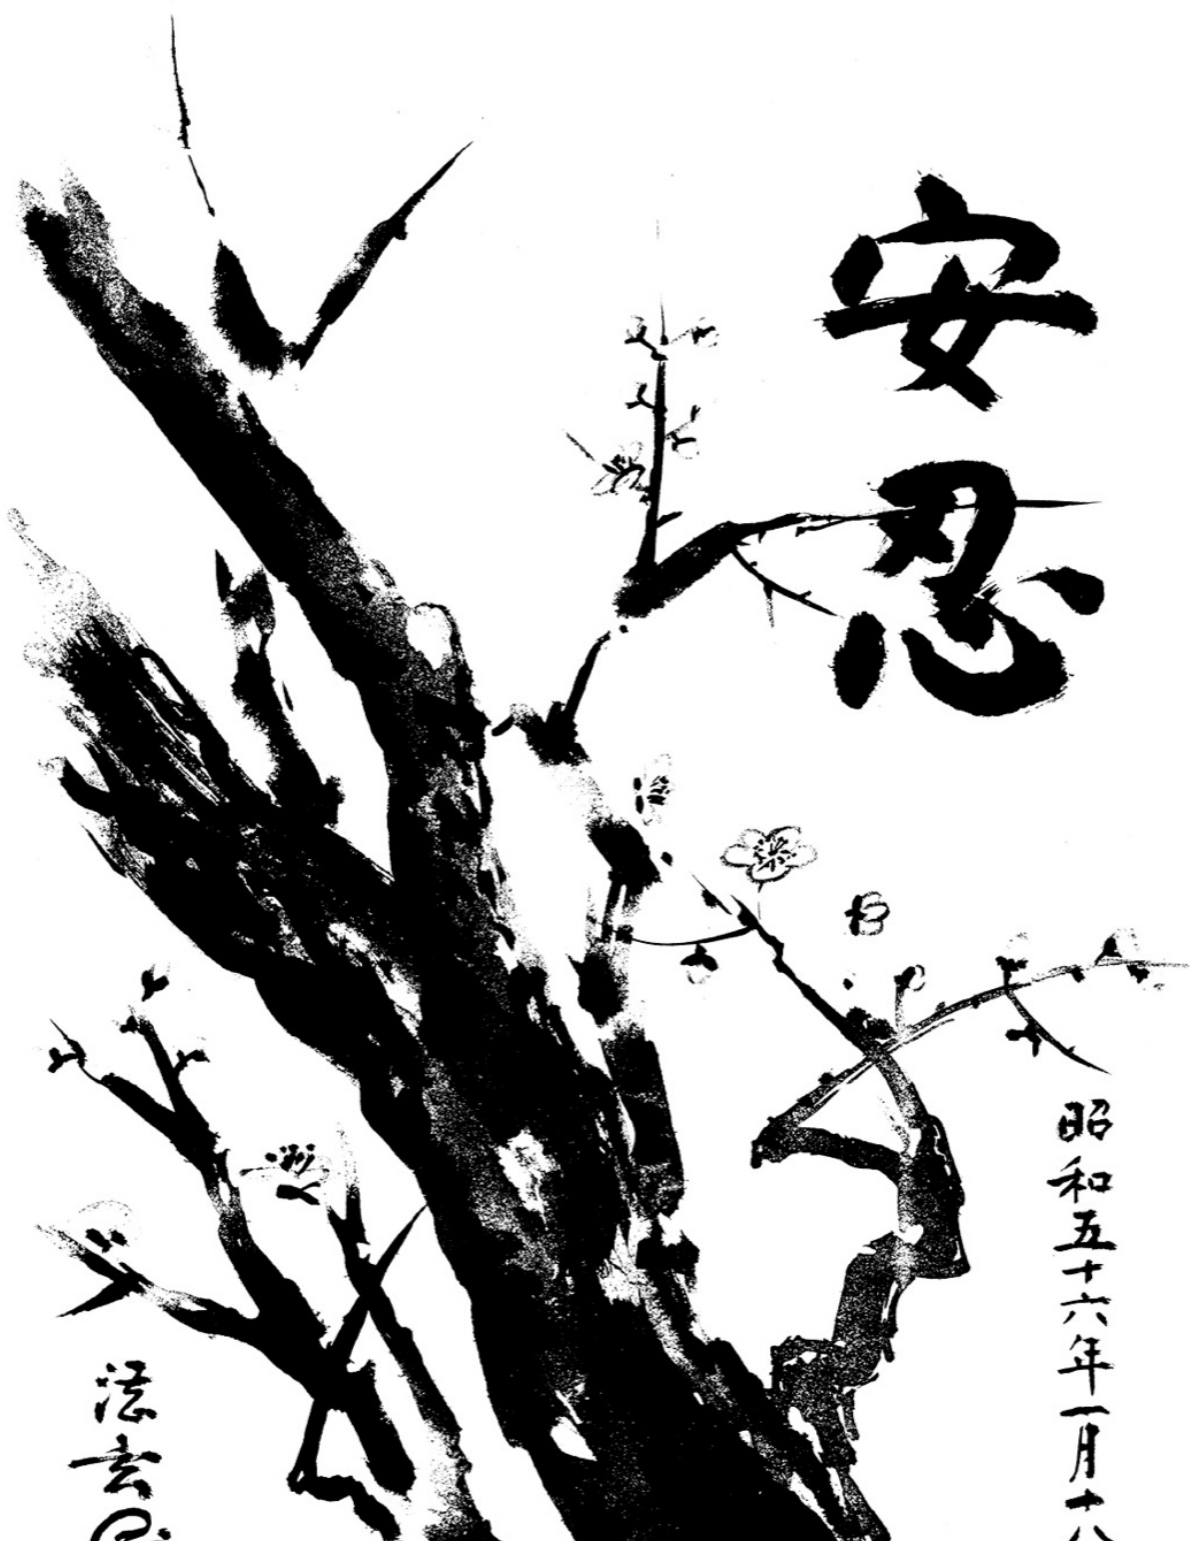 安忍
昭和五十六年一月十八
玄